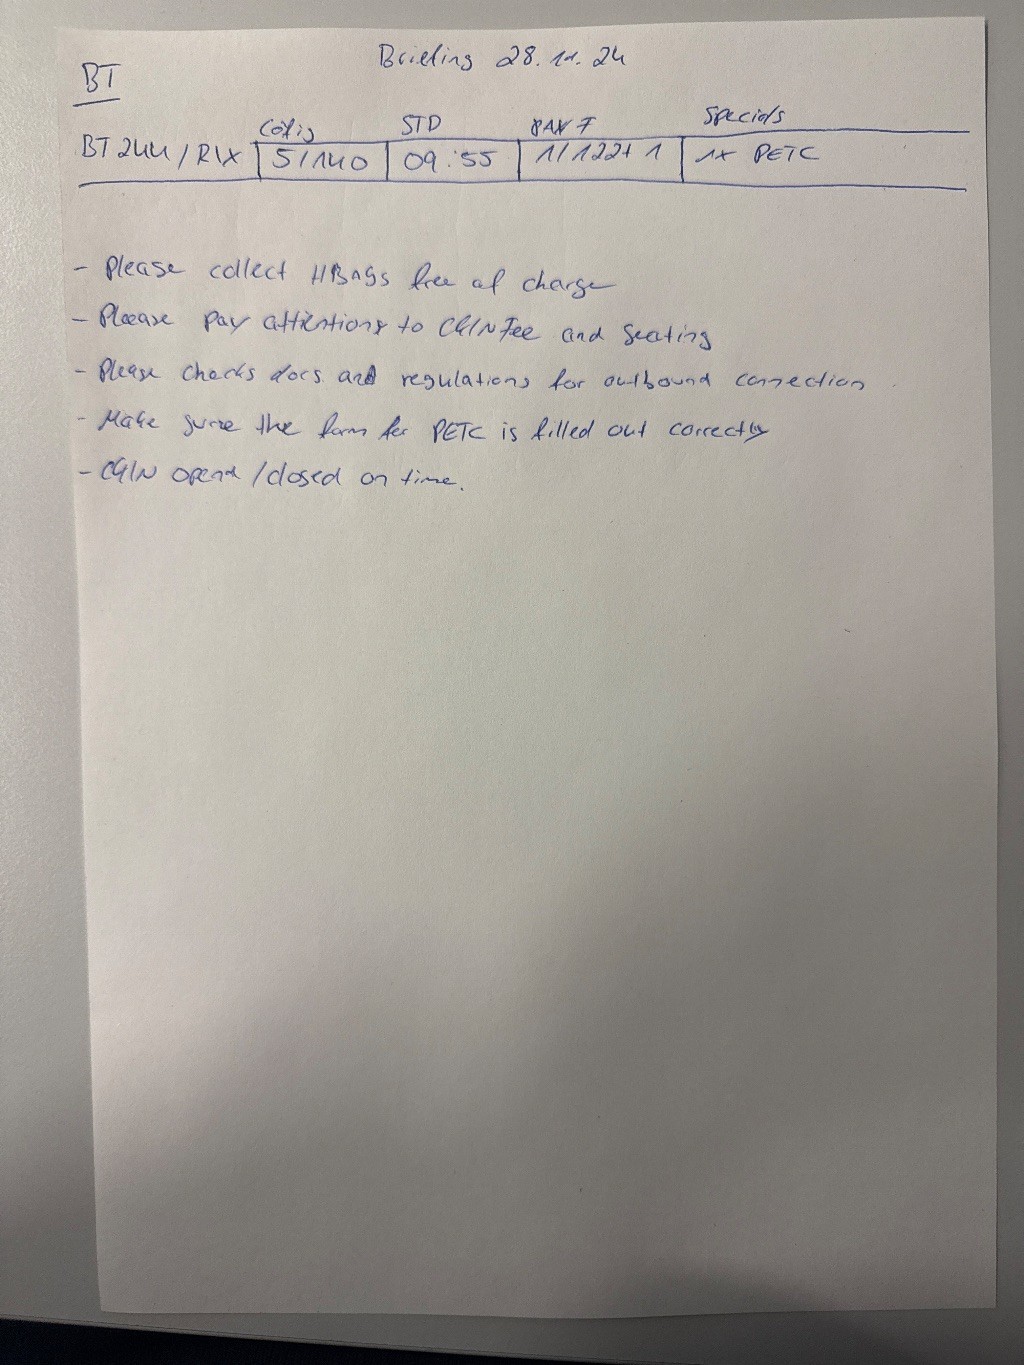 Briefing 28.11.24
BT
Config STD PAX F Specials
BT 244 / RIX 5/140 09:55 1/122+1 1x PETC
- Please collect HBAGS free of charge
- Please pay attentions to CKIN Fee and Seating
- Please checks docs and regulations for outbound connection
- Make sure the form for PETC is filled out correctly
- CKIN open / closed on time.